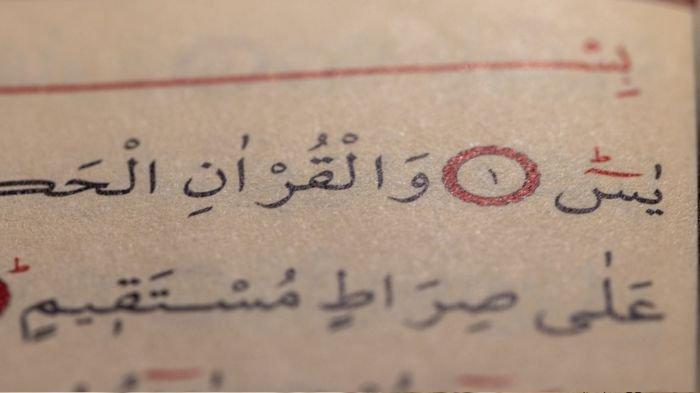 يٰسٓ ۚ ﴿١﴾ وَالْقُرْاٰنِ
عَلٰى صِرَاطٍ مُسْتَقٖيمٍ ط